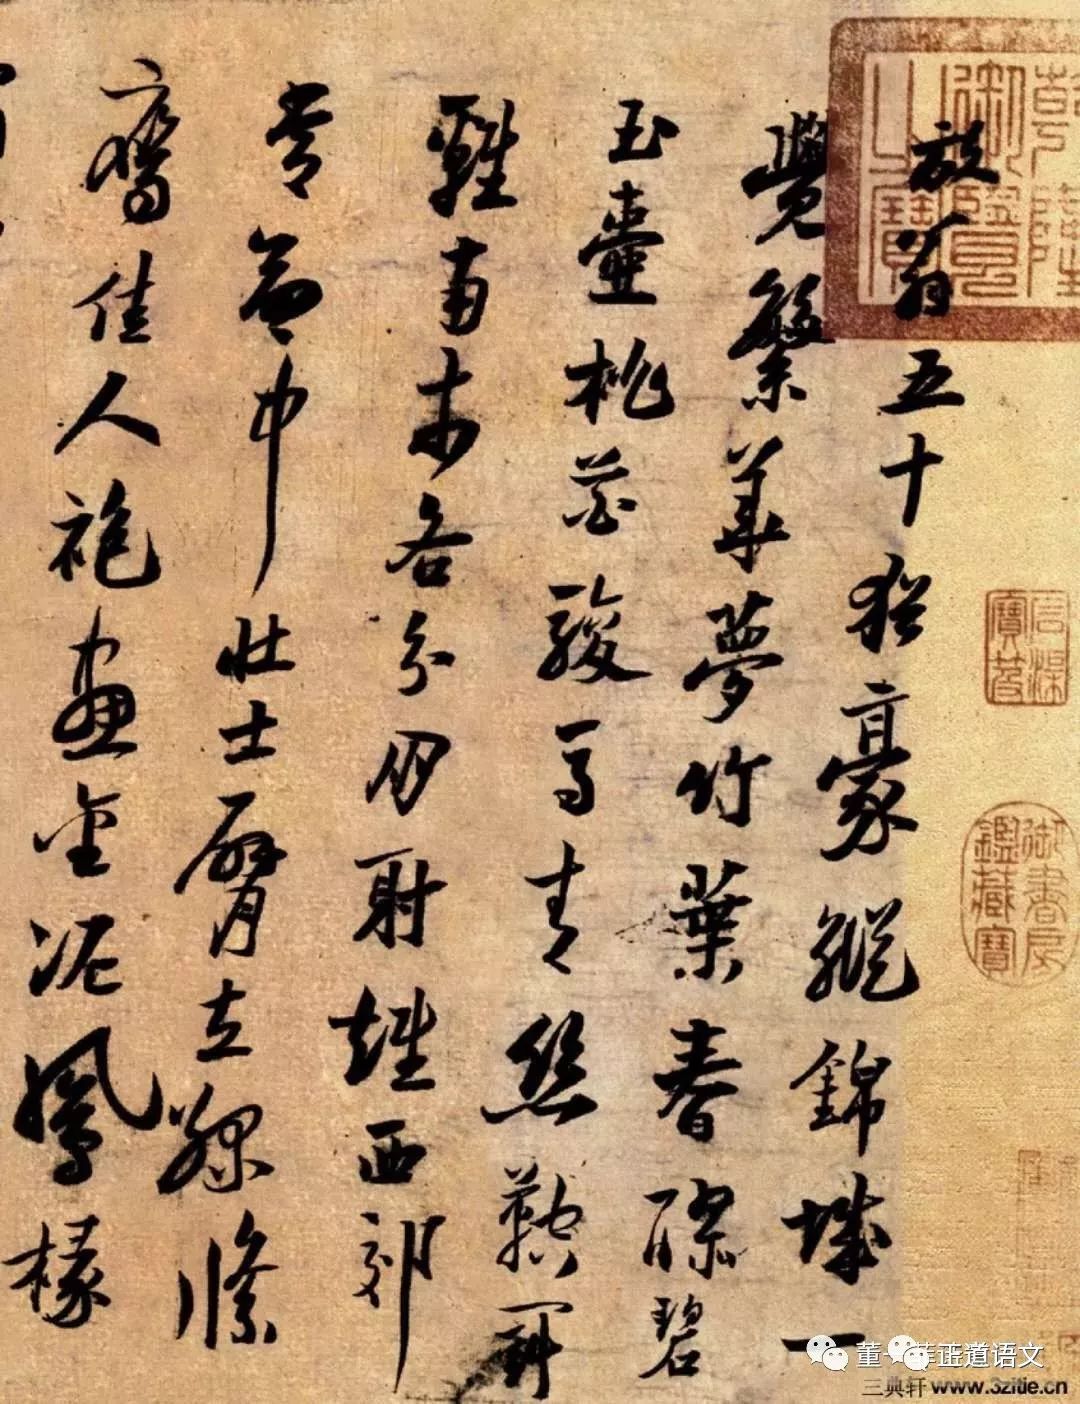 放翁五十猶豪縱錦城一
覺繁華夢竹葉春醪碧
玉壺桃花駿馬青絲鞚鬭
雞南市各分朋射雉西郊
常命中壯士臂立綠絛
鷹佳人袍畫金泥鳳椽
乾隆御覽之寶
石渠寶笈
御書房鑑藏寶
正道语文
三典轩 www.3zitie.cn